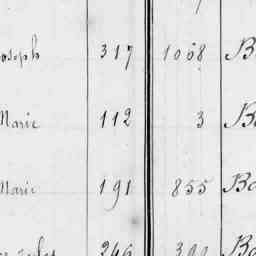 Joseph 317 1058 B
Marie 112 3 B
Marie 191 855 Ba
246 Ba